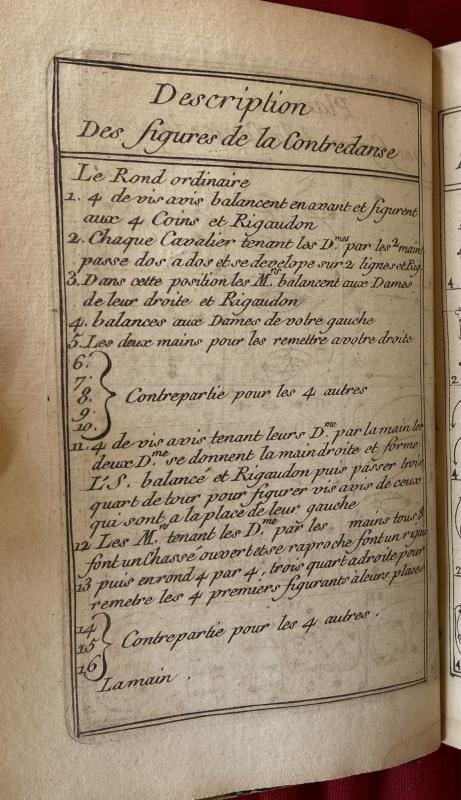 Description
Des figures de la Contredanse
Le Rond ordinaire
1. 4 de vis avis balancent en avant et figurent
aux 4 Coins et Rigaudon
2. Chaque Cavalier tenant les D.mes par les 2 mains
passe dos a dos et se develope sur 2 lignes et Rig.
3. Dans cette position les M.rs balancent aux Dames
de leur droite et Rigaudon
4. balances aux Dames de votre gauche
5. Les deux mains pour les remettre a votre droite
6.
7.
8. Contrepartie pour les 4 autres
9.
10.
11. 4 de vis avis tenant leurs D.me par la main les
deux D.me se donnent la main droite et forme
L'S. balancé et Rigaudon puis passer trois
quart de tour pour figurer vis avis de ceux
qui sont a la place de leur gauche
12 Les M.rs tenant les D.me par les mains tous 8,
font un Chassé ouvert et se raproche font un rigau
13 puis en rond 4 par 4, trois quart a droite pour
remetre les 4 premiers figurants à leurs places
14
15 Contrepartie pour les 4 autres.
16
La main.